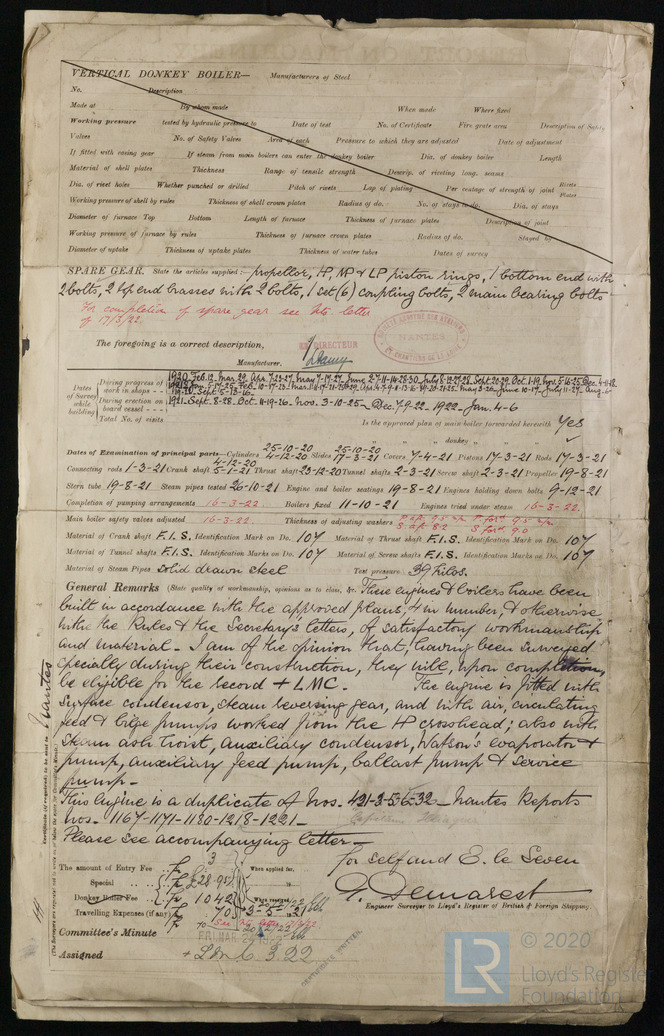 VERTICAL DONKEY BOILER— Manufacturers of Steel
No. Description
Made at By whom made When made Where fixed
Working pressure tested by hydraulic pressure to Date of test No. of Certificate Fire grate area Description of Safety
Valves No. of Safety Valves Area of each Pressure to which they are adjusted Date of adjustment
If fitted with easing gear If steam from main boilers can enter the donkey boiler Dia. of donkey boiler Length
Material of shell plates Thickness Range of tensile strength Descrip. of riveting long. seams
Dia. of rivet holes Whether punched or drilled Pitch of rivets Lap of plating Per centage of strength of joint Rivets Plates
Working pressure of shell by rules Thickness of shell crown plates Radius of do. No. of stays to do. Dia. of stays
Diameter of furnace Top Bottom Length of furnace Thickness of furnace plates Description of joint
Working pressure of furnace by rules Thickness of furnace crown plates Radius of do. Stayed by
Diameter of uptake Thickness of uptake plates Thickness of water tubes Dates of survey
SPARE GEAR. State the articles supplied:— propellor, HP, MP & LP piston rings, 1 bottom end with
2 bolts, 2 top end brasses with 2 bolts, 1 set (6) coupling bolts, 2 main bearing bolts
For completion of spare gear see Nts. letter
of 17/3/22.
The foregoing is a correct description,
LE DIRECTEUR
NANTES
Manufacturer.
Dates of Survey while building
During progress of work in shops - -
1920 Feb. 12, Mar. 29, Apr. 7-23-27, May 7-17-27, June 2-7-11-14-28-30, July 8-12-27-28, Sept. 20-29, Oct. 1-19, Nov. 5-16-25, Dec. 4-11-18
During erection on board vessel - - -
1921. Sept. 8-28, Oct. 11-19-26 - Nov. 3-10-25 - Dec. 7-9-22 - 1922 - Jan. 4-6
Total No. of visits
Is the approved plan of main boiler forwarded herewith Yes
" " " donkey " "
Dates of Examination of principal parts—Cylinders 25-10-20 4-12-20 Slides 25-10-20 17-3-21 Covers 7-4-21 Pistons 17-3-21 Rods 17-3-21
Connecting rods 1-3-21 Crank shaft 4-12-20 5-1-21 Thrust shaft 23-12-20 Tunnel shafts 2-3-21 Screw shaft 2-3-21 Propeller 19-8-21
Stern tube 19-8-21 Steam pipes tested 26-10-21 Engine and boiler seatings 19-8-21 Engines holding down bolts 9-12-21
Completion of pumping arrangements 16-3-22. Boilers fixed 11-10-21 Engines tried under steam 16-3-22.
Main boiler safety valves adjusted 16-3-22 Thickness of adjusting washers
Material of Crank shaft F.I.S. Identification Mark on Do. 107 Material of Thrust shaft F.I.S. Identification Mark on Do. 107
Material of Tunnel shafts F.I.S. Identification Marks on Do. 107 Material of Screw shafts F.I.S. Identification Marks on Do. 107
Material of Steam Pipes solid drawn steel Test pressure 39 kilos.
General Remarks (State quality of workmanship, opinions as to class, &c. These engines & boilers have been
built in accordance with the approved plans, 4 in number, & otherwise
with the Rules & the Secretary's letters, of satisfactory workmanship
and material - I am of the opinion that, having been surveyed
specially during their construction, they will, upon completion,
be eligible for the record + LMC. The engine is fitted with
surface condensor, steam reversing gear, and with air, circulating
feed & bilge pumps worked from the HP crosshead; also with
steam ash hoist, auxiliary condensor, Watson's evaporator &
pump, auxiliary feed pump, ballast pump & service
pump -
This engine is a duplicate of Nos. 421-3-5-6-32 - Nantes Reports
Nos. 1167-1171-1180-1218-1221 -
Please see accompanying letter -
for self and E. le Seven
G. Demarest
Engineer Surveyor to Lloyd's Register of British & Foreign Shipping.
The amount of Entry Fee
Special
Donkey Boiler Fee 1042
Travelling Expenses (if any) 70
When applied for,
When received,
See Nts letter 17/3/22
Committee's Minute
Assigned + LMC 3.22
Certificate (if required) to be sent to Nantes
© 2020
LR
Lloyd's Register
Foundation